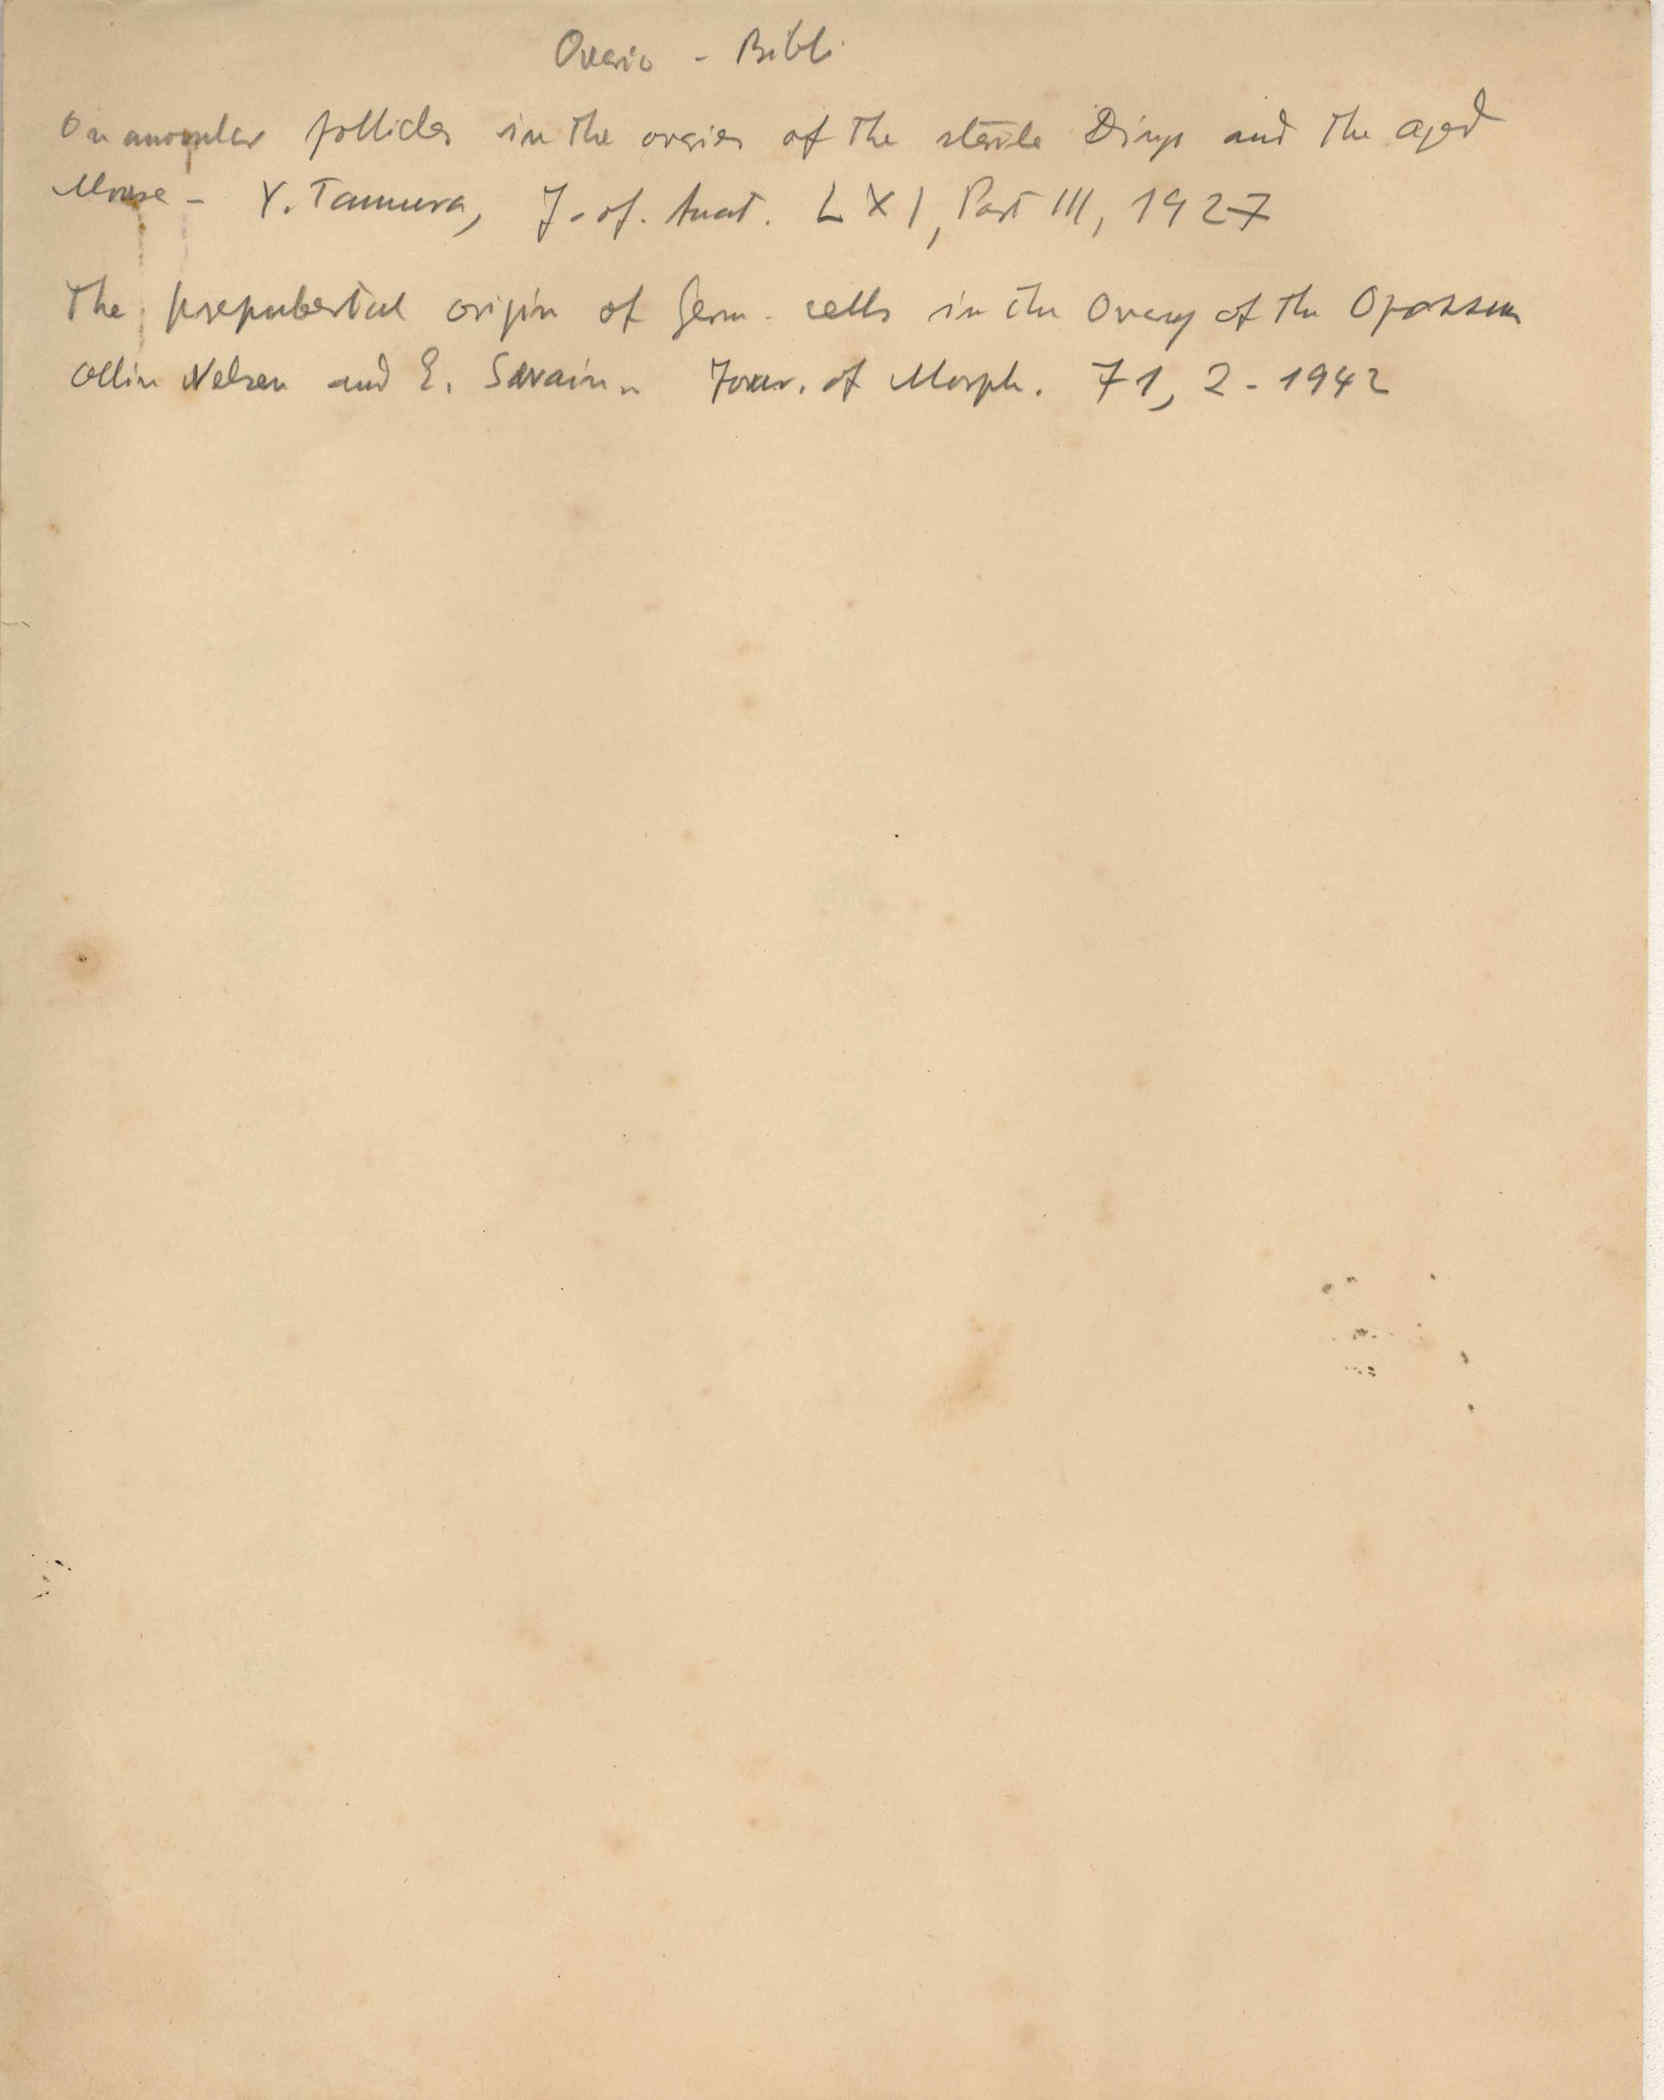 Ovario - Bibli.
On anovular follicles in the ovaries of the sterile Dingo and the aged
Mouse - Y. Tamura, J. of. Anat. LXI, Part III, 1927
The prepubertal origin of Germ. cells in the Ovary of the Opossum
Ollin Nelsen and E. Swain. Jour. of Morph. 71, 2 - 1942